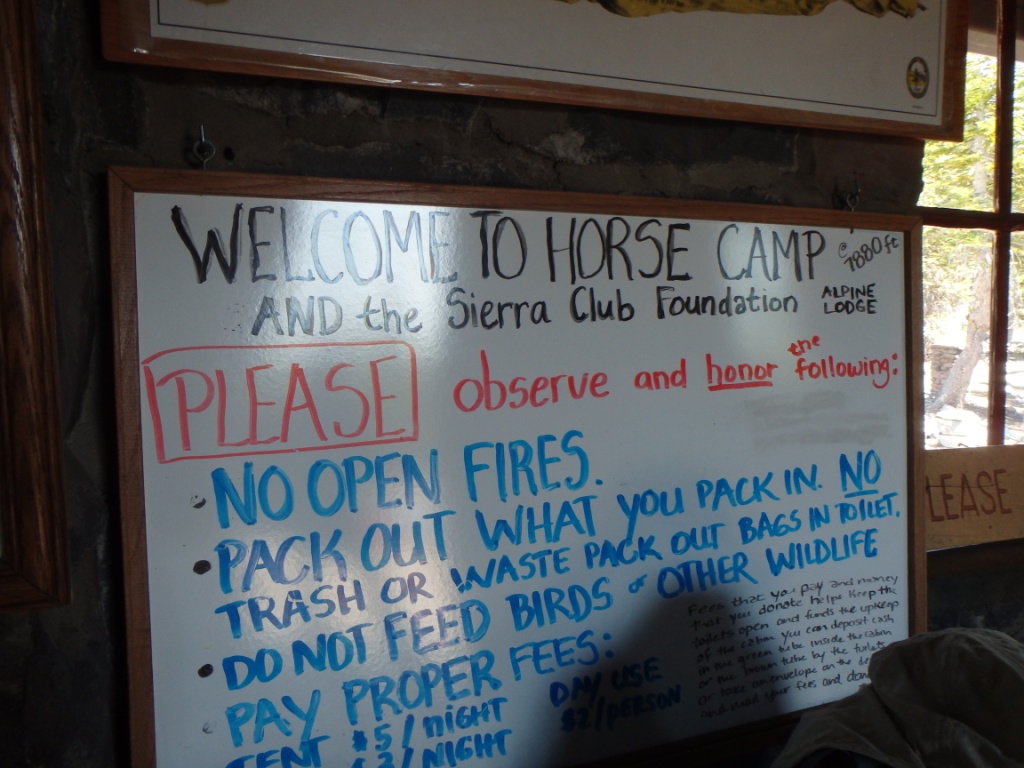 WELCOME TO HORSE CAMP @ 7880 ft
AND the Sierra Club Foundation ALPINE LODGE
PLEASE observe and honor the following:
NO OPEN FIRES.
PACK OUT WHAT YOU PACK IN. NO
TRASH OR WASTE PACK OUT BAGS IN TOILET.
DO NOT FEED BIRDS or OTHER WILDLIFE
PAY PROPER FEES:
TENT $5/night DAY USE
/NIGHT $2/person
Fees that you pay and money
that you donate helps keep the
toilets open and funds the upkeep
of the cabin. You can deposit cash
in the green tube inside the cabin
or the brown tube by the toilets
or take an envelope on the
and mail your fees and
LEASE